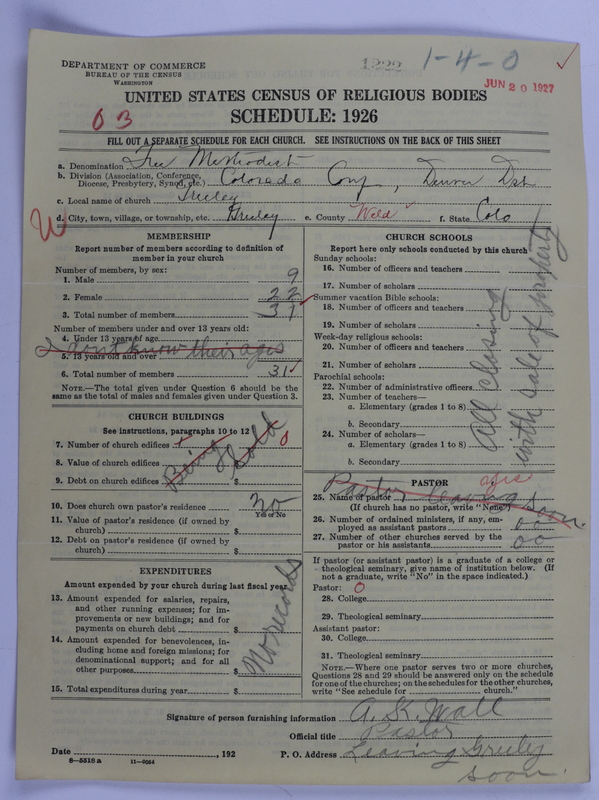 DEPARTMENT OF COMMERCE
BUREAU OF THE CENSUS
WASHINGTON
1222
1-4-0
JUN 20 1927
UNITED STATES CENSUS OF RELIGIOUS BODIES
SCHEDULE: 1926
03
FILL OUT A SEPARATE SCHEDULE FOR EACH CHURCH. SEE INSTRUCTIONS ON THE BACK OF THIS SHEET
a. Denomination Free Methodist
b. Division (Association, Conference, Diocese, Presbytery, Synod, etc.) Colorado Conf, Denver Dst
c. Local name of church Greeley
d. City, town, village, or township, etc. Greeley e. County Weld f. State Colo
W
MEMBERSHIP
Report number of members according to definition of
member in your church
Number of members, by sex:
1. Male 9
2. Female 22
3. Total number of members 31
Number of members under and over 13 years old:
4. Under 13 years of age
I don't know their ages
5. 13 years old and over
6. Total number of members 31
NOTE.—The total given under Question 6 should be the
same as the total of males and females given under Question 3.
CHURCH BUILDINGS
See instructions, paragraphs 10 to 12
7. Number of church edifices
8. Value of church edifices $
9. Debt on church edifices $
Being Sold
0
10. Does church own pastor's residence? No
Yes or No
11. Value of pastor's residence (if owned by
church) $
12. Debt on pastor's residence (if owned by
church) $
EXPENDITURES
Amount expended by your church during last fiscal year
13. Amount expended for salaries, repairs,
and other running expenses; for im-
provements or new buildings; and for
payments on church debt $
14. Amount expended for benevolences, in-
cluding home and foreign missions; for
denominational support; and for all
other purposes $
15. Total expenditures during year $
No records
CHURCH SCHOOLS
Report here only schools conducted by this church
Sunday schools:
16. Number of officers and teachers
17. Number of scholars
Summer vacation Bible schools:
18. Number of officers and teachers
19. Number of scholars
Week-day religious schools:
20. Number of officers and teachers
21. Number of scholars
Parochial schools:
22. Number of administrative officers
23. Number of teachers—
a. Elementary (grades 1 to 8)
b. Secondary
24. Number of scholars—
a. Elementary (grades 1 to 8)
b. Secondary
All closing
with sale of property
PASTOR
25. Name of pastor Pastor leaving soon.
(If church has no pastor, write "None")
26. Number of ordained ministers, if any, em-
ployed as assistant pastors 00
27. Number of other churches served by the
pastor or his assistants 00
If pastor (or assistant pastor) is a graduate of a college or
theological seminary, give name of institution below. (If
not a graduate, write "No" in the space indicated.)
Pastor: 0
28. College
29. Theological seminary
Assistant pastor:
30. College
31. Theological seminary
NOTE.—Where one pastor serves two or more churches,
Questions 28 and 29 should be answered only on the schedule
for one of the churches; on the schedules for the other churches,
write "See schedule for church."
Signature of person furnishing information A. K. Wall
Official title Pastor
Date , 192 P. O. Address Leaving Greeley
soon.
8—5518 a 11—9054